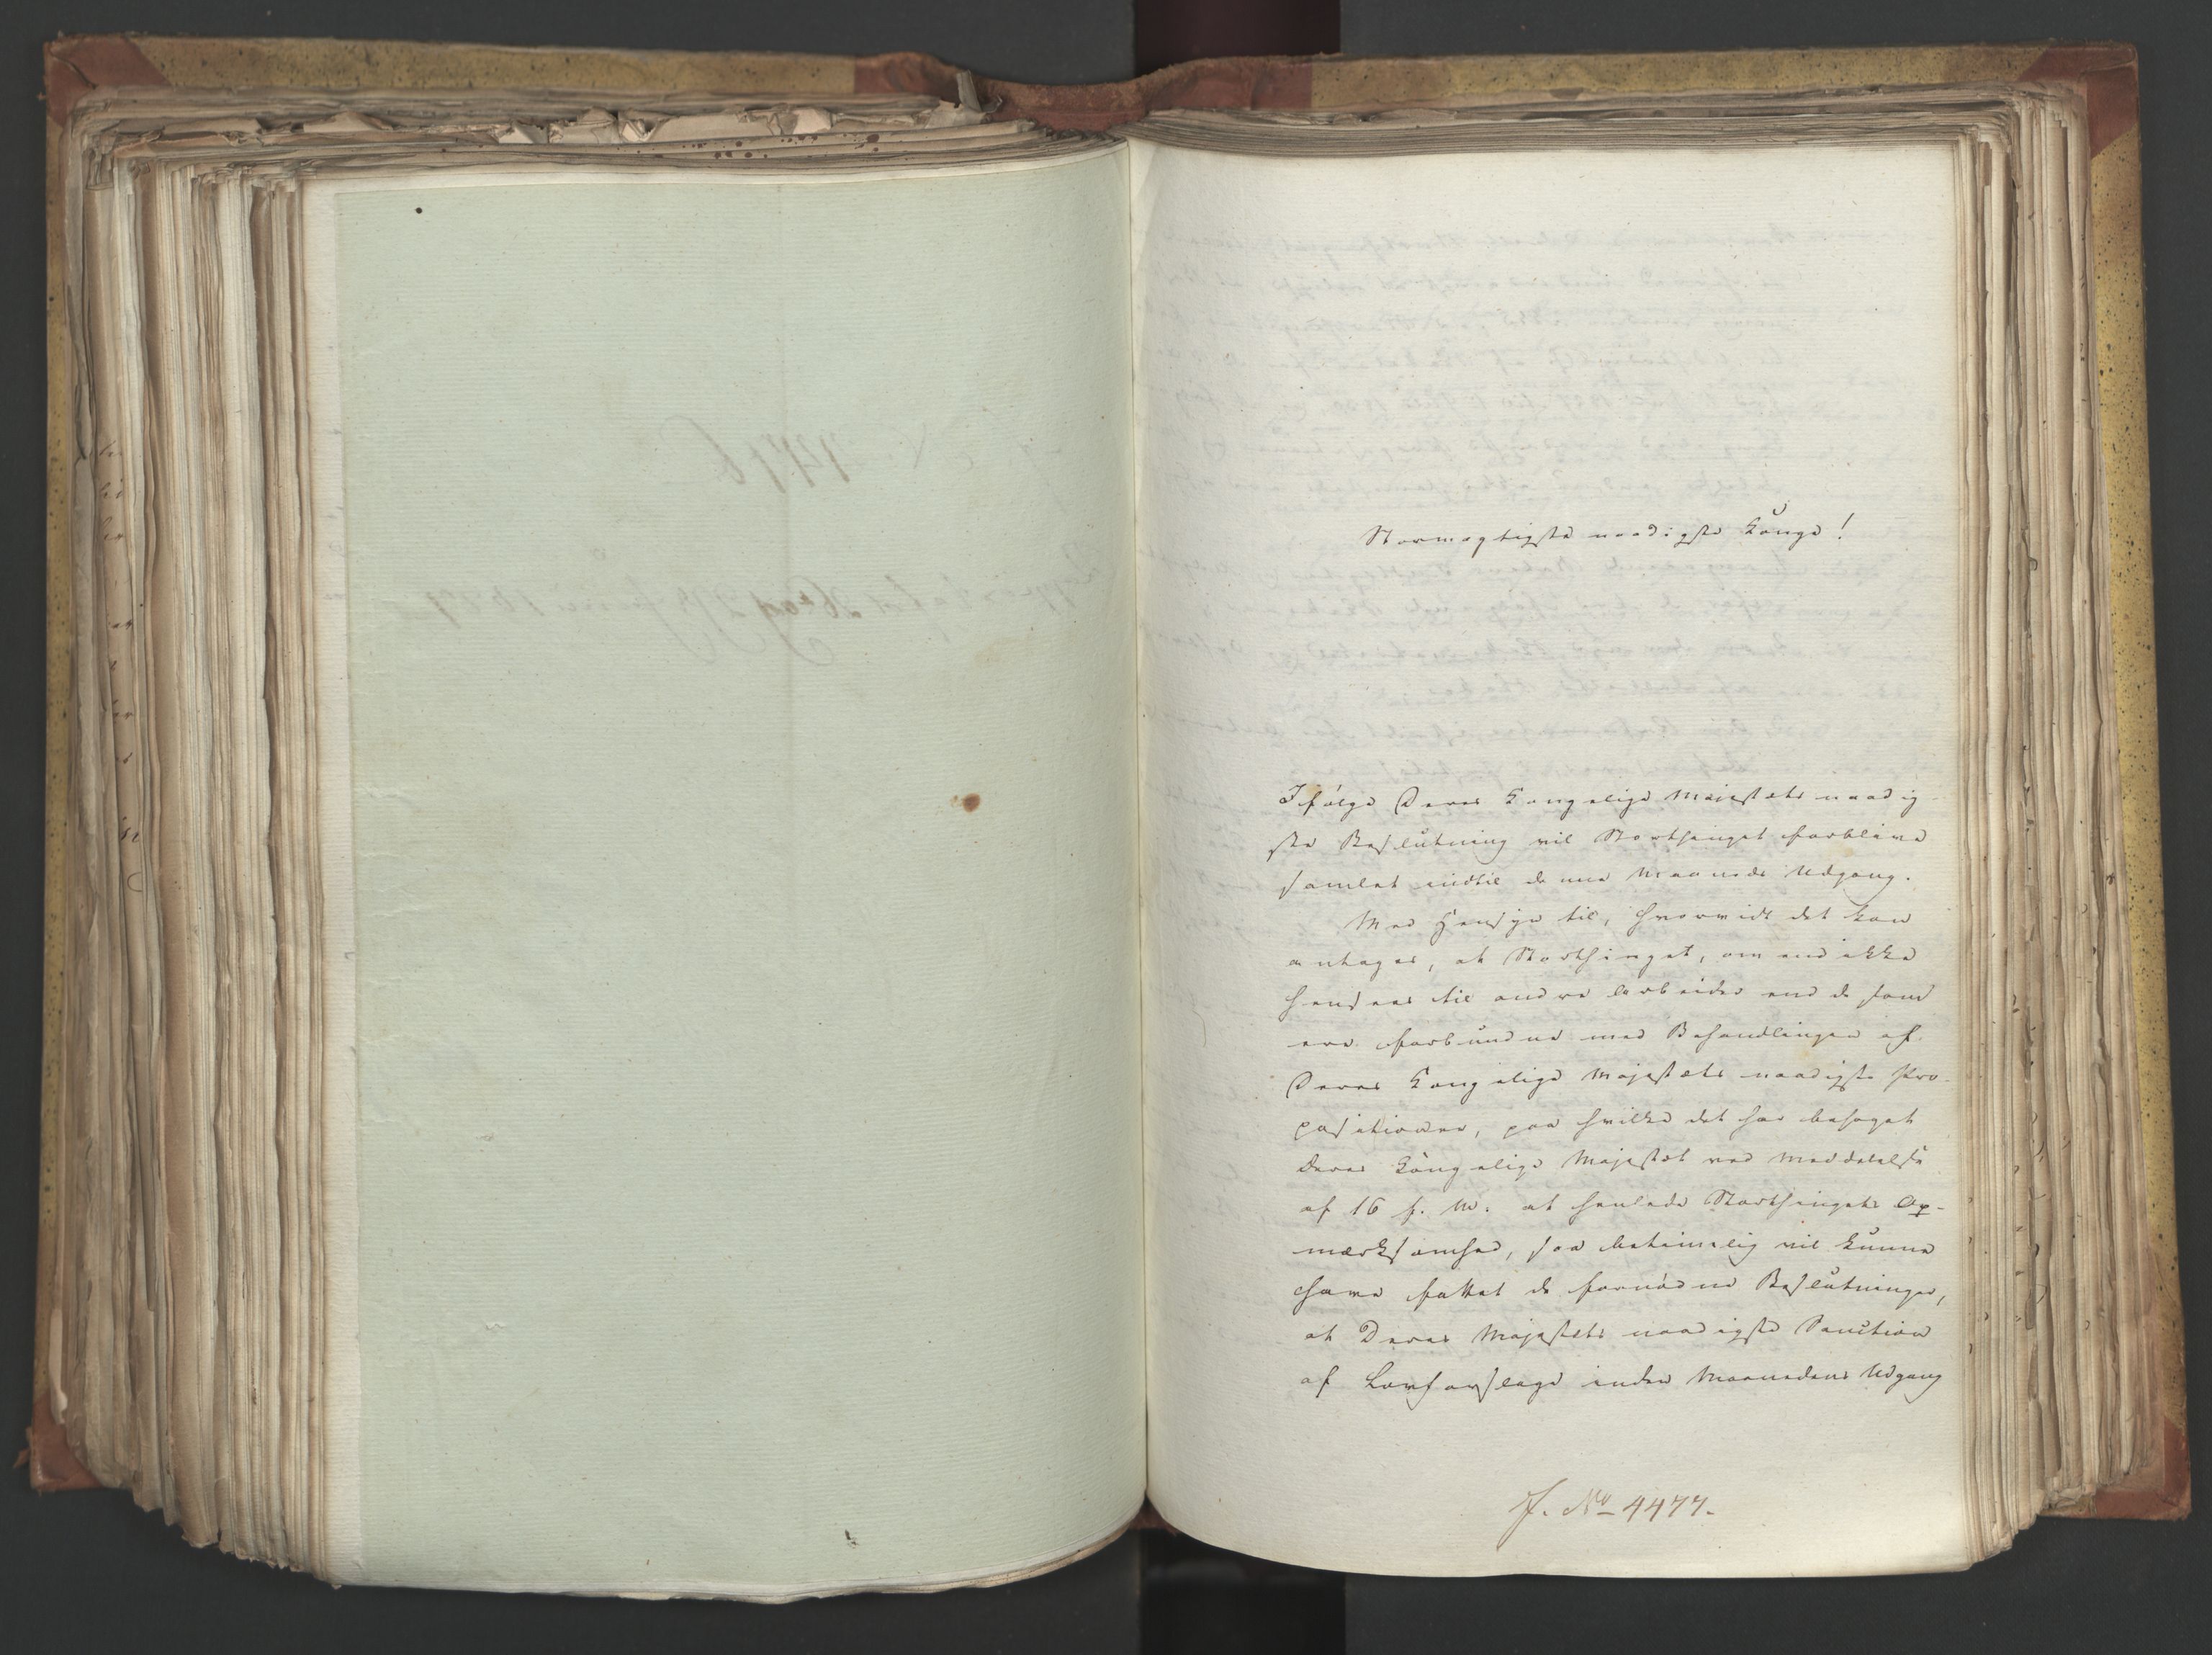 Stormægtigste naadigste Konge!
Ifølge Deres Kongelige Majestæts naadig
ste Beslutning vil Storthinget forblive
samlet indtil denne Maaneds Udgang.
Med Hensyn til, hvorvidt det kan
antages, at Storthinget, om end ikke
hensees til andre Arbeider end de som
ere forbundne med Behandlingen af
Deres Kongelige Majestæts naadigste Pro-
positioner, paa hvilke det har behaget
Deres Kongelige Majestæt ved Meddelelse
af 16 f. M. at henlede Storthingets Op-
mærksomhed, saa betimelig vil kunne
have fattet de fornødne Beslutninger,
at Deres Majestæts naadigste Sanction
af Lovforslage inden Maanedens Udgang
J. No 4477.